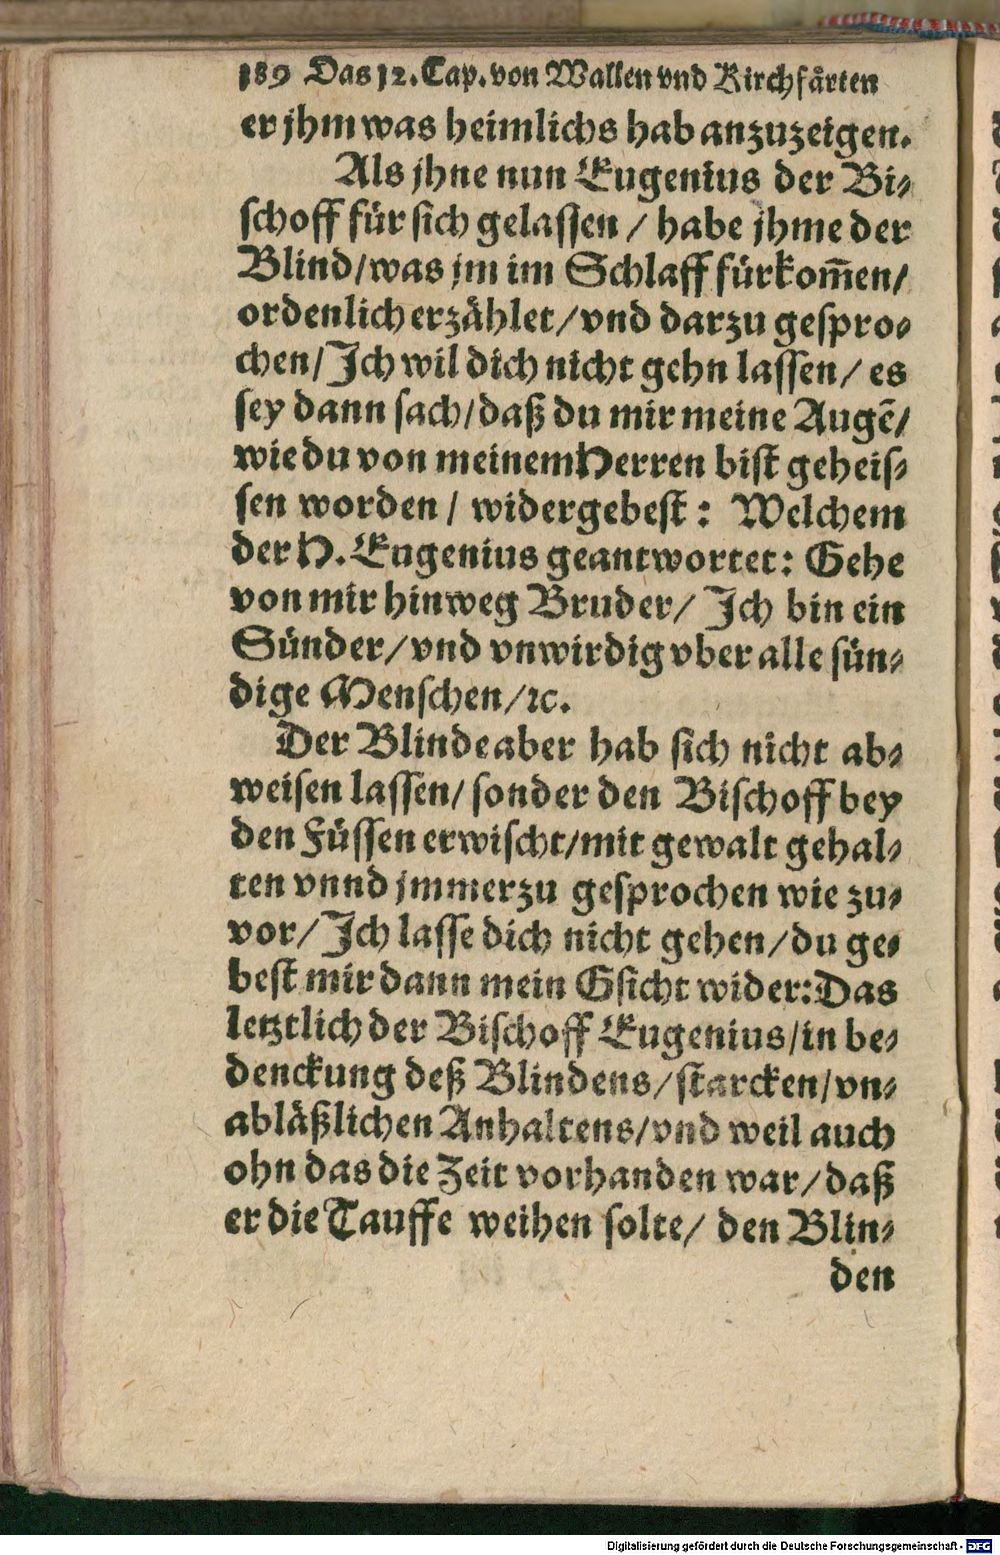 189 Das 12. Cap. von Wallen vnd Kirchfårten
er jhm was heimlichs hab anzuzeigen.
Als jhne nun Eugenius der Bi⸗
schoff für sich gelassen / habe jhme der
Blind/was jm im Schlaff fürkom̃en/
ordenlich erzåhlet/vnd darzu gespro⸗
chen/Jch wil dich nicht gehn lassen/ es
sey dann sach/daß du mir meine Augẽ/
wie du von meinem Herren bist geheis⸗
sen worden / widergebest : Welchem
der H. Eugenius geantwortet: Gehe
von mir hinweg Bruder/ Jch bin ein
Sünder/vnd vnwirdig vber alle sün⸗
dige Menschen/ꝛc.
Der Blinde aber hab sich nicht ab⸗
weisen lassen/ sonder den Bischoff bey
den Füssen erwischt/mit gewalt gehal⸗
ten vnnd jmmerzu gesprochen wie zu⸗
vor/ Jch lasse dich nicht gehen/du ge⸗
best mir dann mein Gsicht wider: Das
letztlich der Bischoff Eugenius/in be⸗
denckung deß Blindens/ starcken/vn⸗
ablåßlichen Anhaltens/vnd weil auch
ohn das die Zeit vorhanden war/daß
er die Tauffe weihen solte/ den Blin⸗
den
Digitalisierung gefördert durch die Deutsche Forschungsgemeinschaft - DFG